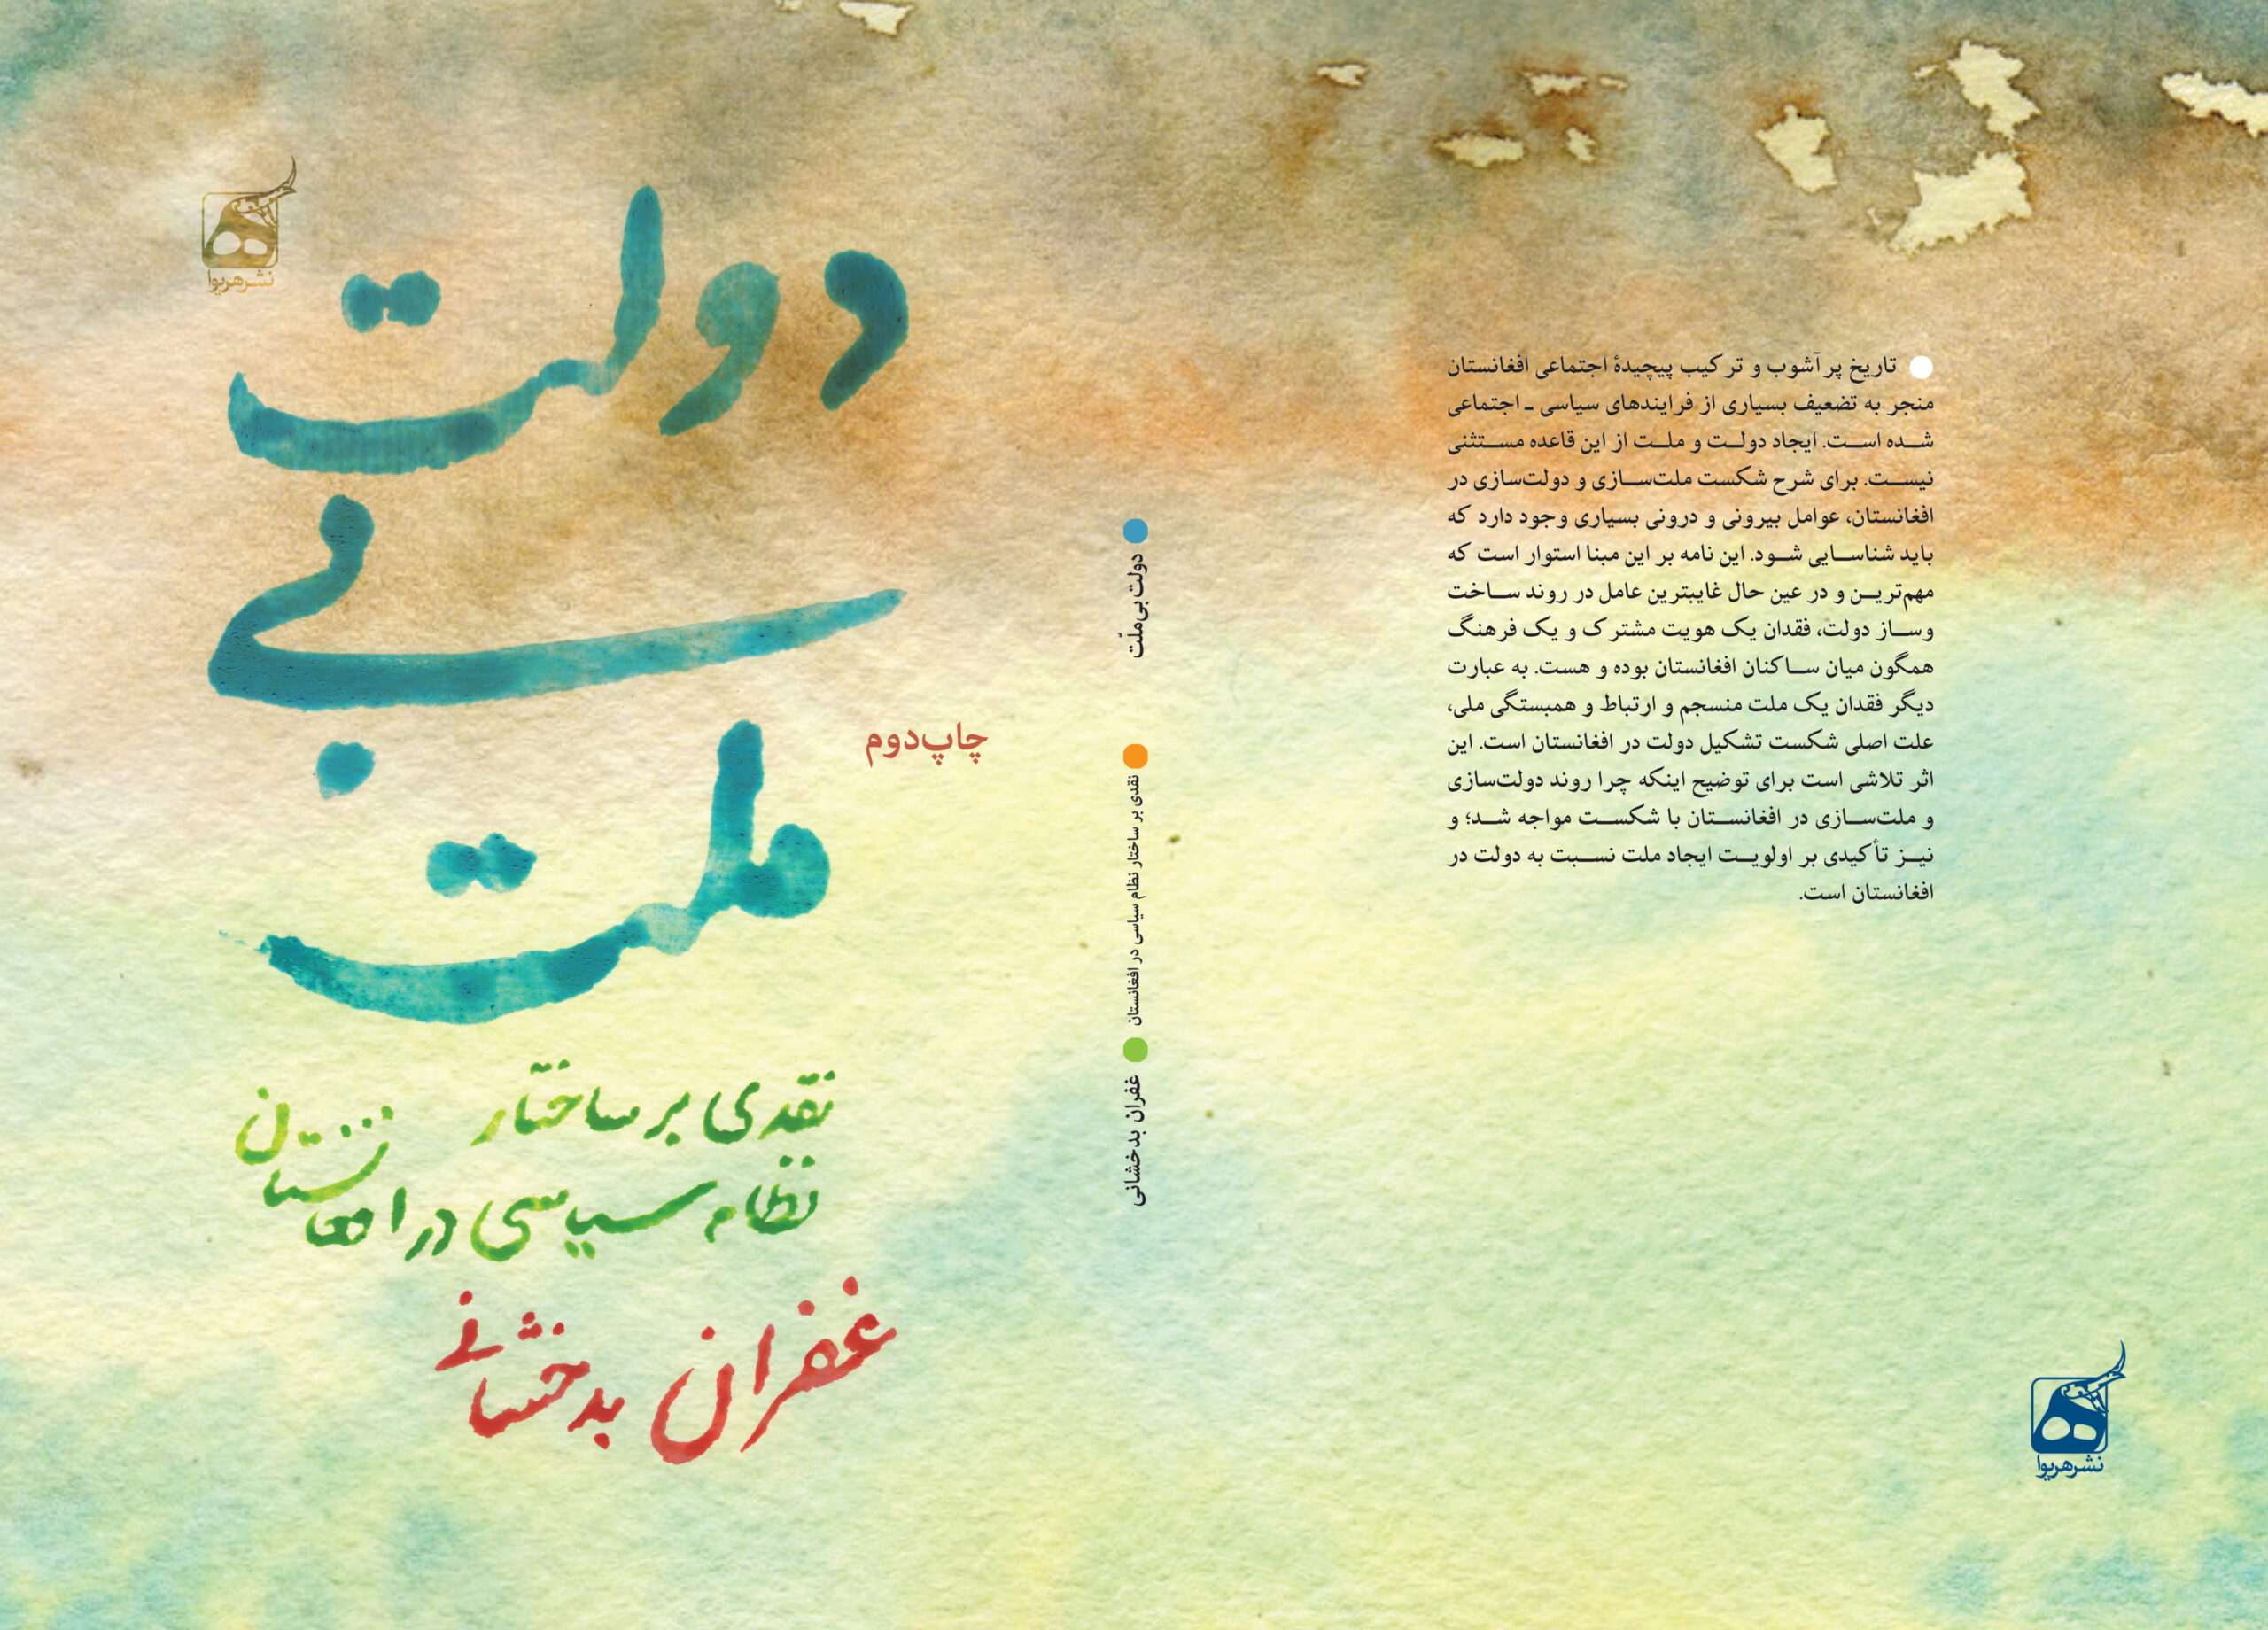 دولت
بی
ملت
چاپ دوم
نقدی بر ساختار
نظام سیاسی در افغانستان
غفران بدخشانی
نشر هریوا
دولت بی‌ملّت
نقدی بر ساختار نظام سیاسی در افغانستان
غفران بدخشانی
تاریخ پر آشوب و ترکیب پیچیدهٔ اجتماعی افغانستان
منجر به تضعیف بسیاری از فرایندهای سیاسی ـ اجتماعی
شده است. ایجاد دولت و ملت از این قاعده مستثنی
نیست. برای شرح شکست ملت‌سازی و دولت‌سازی در
افغانستان، عوامل بیرونی و درونی بسیاری وجود دارد که
باید شناسایی شود. این نامه بر این مبنا استوار است که
مهم‌ترین و در عین حال غایبترین عامل در روند ساخت
وساز دولت، فقدان یک هویت مشترک و یک فرهنگ
همگون میان ساکنان افغانستان بوده و هست. به عبارت
دیگر فقدان یک ملت منسجم و ارتباط و همبستگی ملی،
علت اصلی شکست تشکیل دولت در افغانستان است. این
اثر تلاشی است برای توضیح اینکه چرا روند دولت‌سازی
و ملت‌سازی در افغانستان با شکست مواجه شد؛ و
نیز تأکیدی بر اولویت ایجاد ملت نسبت به دولت در
افغانستان است.
نشر هریوا